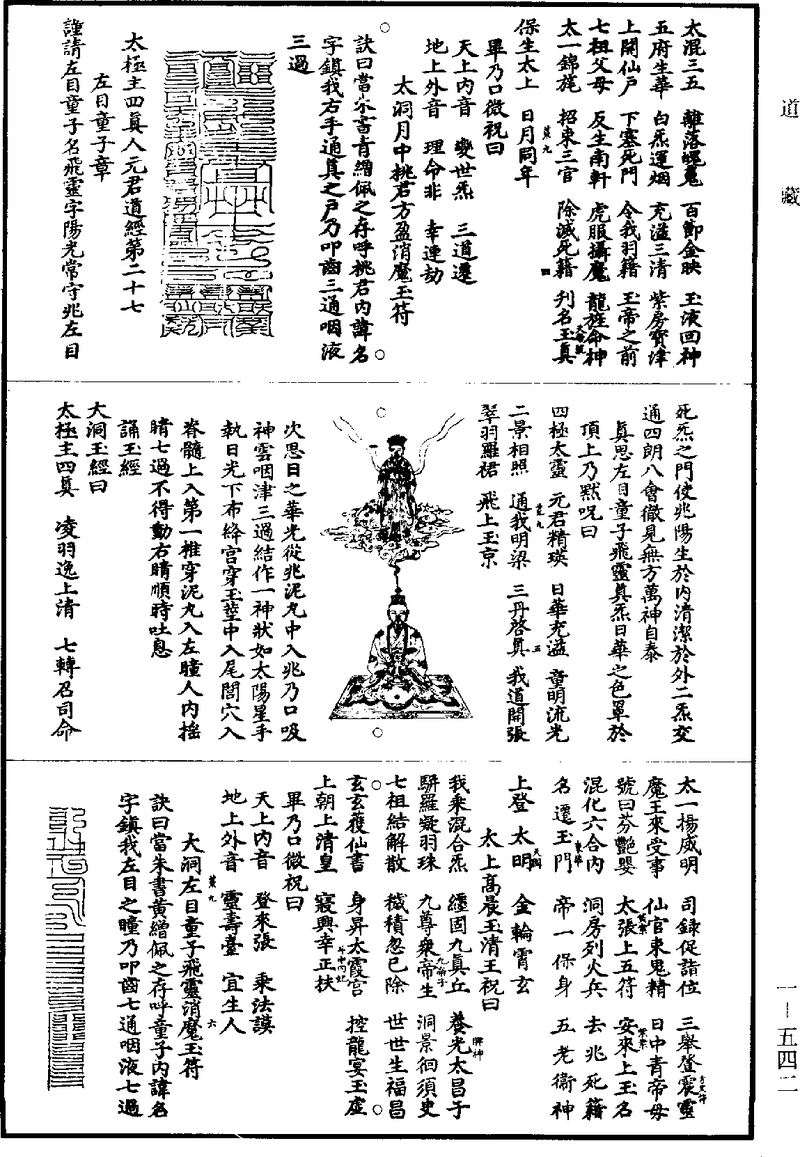 道藏
太混三五　離落魂鬼　百節金映　玉液回神
五府生華　白炁運烟　充溢三清　紫房寶津
上開仙戶　下塞死門　令我羽籍　玉帝之前
七祖父母　反生南軒　虎服攝魔　龍旌命神
太一錦旄　招束三官　除滅死籍　刋名玉真
保生太上　日月同年
畢乃口微祝曰
天上內音　變世炁　三道遷
地上外音　理命非　幸連劫
太洞月中桃君方盈消魔玉符
訣曰當朱書青繒佩之存呼桃君內諱名
字鎮我右手通真之戶乃叩齒三通咽液
三過
太極主四真人元君道經第二十七
左目童子章
謹請左目童子名飛靈字陽光常守兆左目
死炁之門使兆陽生於內清潔於外二炁交
通四朗八會徹見無方萬神自泰
真思左目童子飛靈真炁日華之色罩於
頂上乃默呪曰
四極太靈　元君精瑛　日華充溢　童明流光
二景相照　通我明梁　三丹啓真　我道開張
翠羽羅裙　飛上玉京
次思日之華光從兆泥丸中入兆乃口吸
神雲咽津三過結作一神狀如太陽星手
執日光下布絳宮穿玉莖中入尾閭穴入
脊髓上入第一椎穿泥丸入左瞳人內揺
睛七過不得動右睛順時吐息
誦玉經
大洞玉經曰
太極主四真　凌羽逸上清　七轉召司命
太一揚威明　司錄促詣位　三舉登震靈
魔王來受事　仙官束鬼精　日中青帝母
號曰芬艷嬰　太張上五符　安來上玉名
混化六合內　洞房列火兵　去兆死籍
名遷玉門　帝一保身　五老衛神
上登太明　金輪霄玄
太上高晨玉清王祝曰
我乘混合炁　纏固九真丘　養光太昌子
駢羅凝羽珠　九尊來帝生　洞景徊須史
七祖結解散　穢積忽已除　世世生福昌
玄玄獲仙書　身昇太霞宮　控龍宴玉虛
上朝上清皇　寢興幸正扶
畢乃口微祝曰
天上內音　登來張　乘法謨
地上外音　靈壽臺　宜生人
大洞左目童子飛靈消魔玉符
訣曰當朱書黃繒佩之存呼童子內諱名
字鎮我左目之瞳乃叩齒七通咽液七過
一－五四二